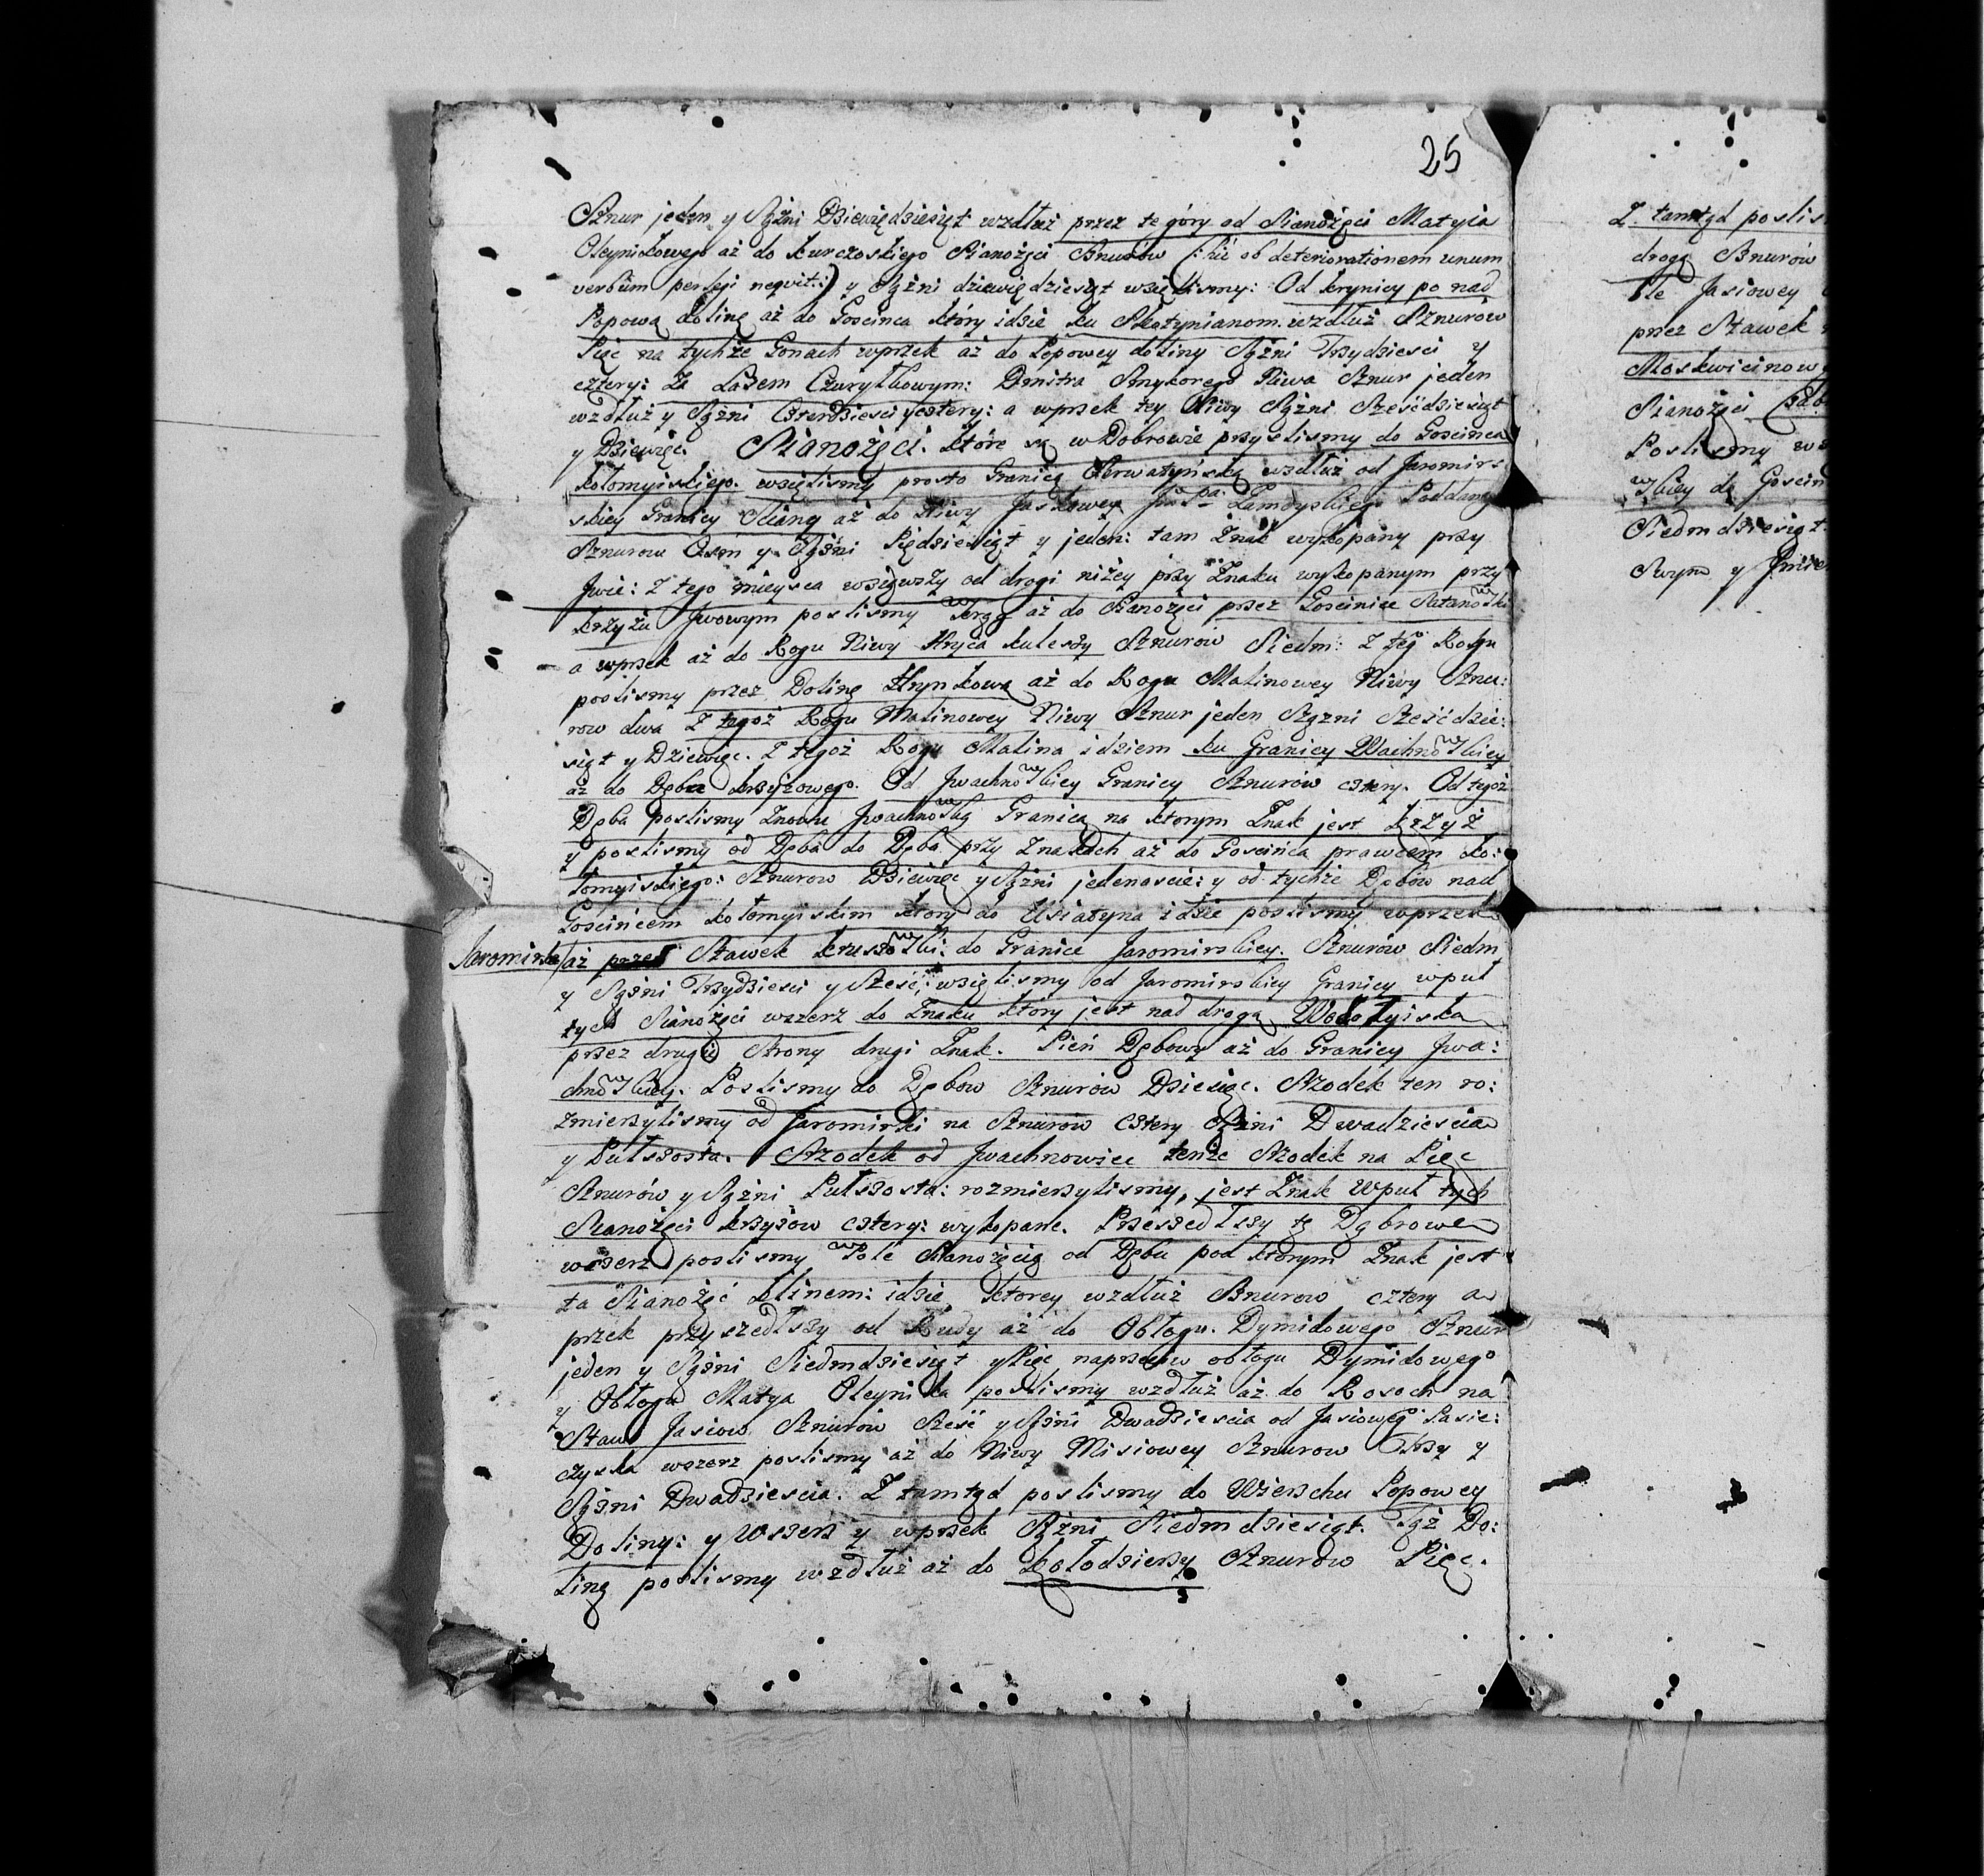 25
Sznur jeden y Sążni Dziewiędziesiąt wzdłuż przez te góry od Sianożęci Matyia
Oleynikowego aż do kurczoskiego Sianożęci Sznurów (: hic ob deteriorationem unum
verbum perlegi nequit :) y Sążni dziewiędziesiąt wzięlismy: Od krynicy po nad
Popową dolinę aż do Goscinca który idzie ku Skotynianom. wzdłuż Sznurow
Pięc na tychże Gonach wprzek aż do Popowey doliny Sążni Trzydziesci y
cztery: Za Lasem Czurytkowym: Dmitra Smykorego Niwa Sznur jeden
wzdłuż y Sążni Czterdziesci y cztery: a wprzek tey Niwy Sążni Sześćdziesiąt
y Dziewięc. Sianożęci. które są w Dobrowie przyslismy do Goscinca
kołomyiskiego. wzięlismy prosto Granicą wzdłuż od Jaromirs
skiey Granicy Scianą aż do Niwy Jaskowey Jmć Pa. Zamoyskiego Poddany
Sznurow Osm y Sążni Pędziesiąt y jeden: tam Znak wykopany przy
Jwie: Z tego mieysca wziąwszy od drogi niżey przy Znaku wykopanym przy
krzyżu Jwowym poslismy aż do Sianożęci przez Gosciniec Satanowski
a wprzek aż do Rogu Niwy Hryca kuleszy Sznurów Siedm: Z teg° Rogu
poslismy przez Dolinę Hrynkową aż do Rogu Malinowey Niwy Sznu:
row dwa Z tegoż Rogu Malinowey Niwy Sznur jeden Sążni Sześćdzie:
siąt y Dziewięc. Z tegoż Rogu Malina idziem ku Granicy Wachnowskiey
aż do Dęba krzyżowego. Od Jwachnowskiey Granicy Sznurów cztery. Od tegoż
Dęba poslismy Znowu Jwachnowską Granicą na ktorym Znak jest krzyż
y poslismy od Dęba do Dęba przy Znakach aż do Gościńca prawcem ko:
łomyiskiego: Sznurow Dziewięc y Sążni jedenascie: y od tychże Dębów nad
Gościńcem kołomyiskim ktory do Usiatyna idzie poslismy wprzek
Jaromirka
aż przez Stawek kruszowski do Granice Jaromirskiey. Sznurów Siedm
y Sążni Trzydziesci y Sześć: wzięlismy od Jaromirskiey Granicy wpuł
tych Sianożęci wszerz do Znaku który jest nad drogą
przez drugie Strony drugi Znak. Pień Dębowy aż do Granicy Jwa:
chnowskiey. Poslismy do Dębow Sznurów Dziesięc. Szodek ten ro:
zmierzylismy od Jaromirki na Sznurow cztery Sążni Dwadziescia
y Pułszosta. Szodek od Jwachnowiec tenże Szodek na Pięc
Sznurów y Sążni Pułszosta: rozmierzylismy, jest Znak wpuł tych
Sianożęci krzyżow cztery: wykopane. Przeszedłszy tę Dąbrowę
wszerz poslismy w Pole Sianożęcią od Dębu pod ktorym Znak jest
ta Sianożęć klinem: idzie, ktorey wzdłuż Sznurow cztery a
przek przyszedłszy od Rudy aż do Obłogu. Dymidowego Sznur
jeden y Sążni Siedmdziesiąt y Pięc naprzeciw obłogu Dymidowego
y Obłogu Matya Oleynika poslismy wzdłuż aż do Rosoch na
Staw Jasiow Sznurów Sześć y Sążni Dwadziescia od Jasioweg° Pasie:
czyska wszerz poslismy aż do Niwy Misiowey Sznurow Trzy y
Sążni Dwadziescia. Z tamtąd poslismy do Wierzchu Popowey
Doliny: y Wszerz y wprzek Sążni Siedmdziesiąt. Tąż Do:
liną poslismy wzdłuż aż do kołodziezy Sznurow Pięc.
Z tamtąd poslis
drogą Sznurów
Jasiowey
przez Stawek
Moskwicinowy
Sianożęci
Poslismy
wskiey do Goscin
Siedmdziesiąt
Swym y